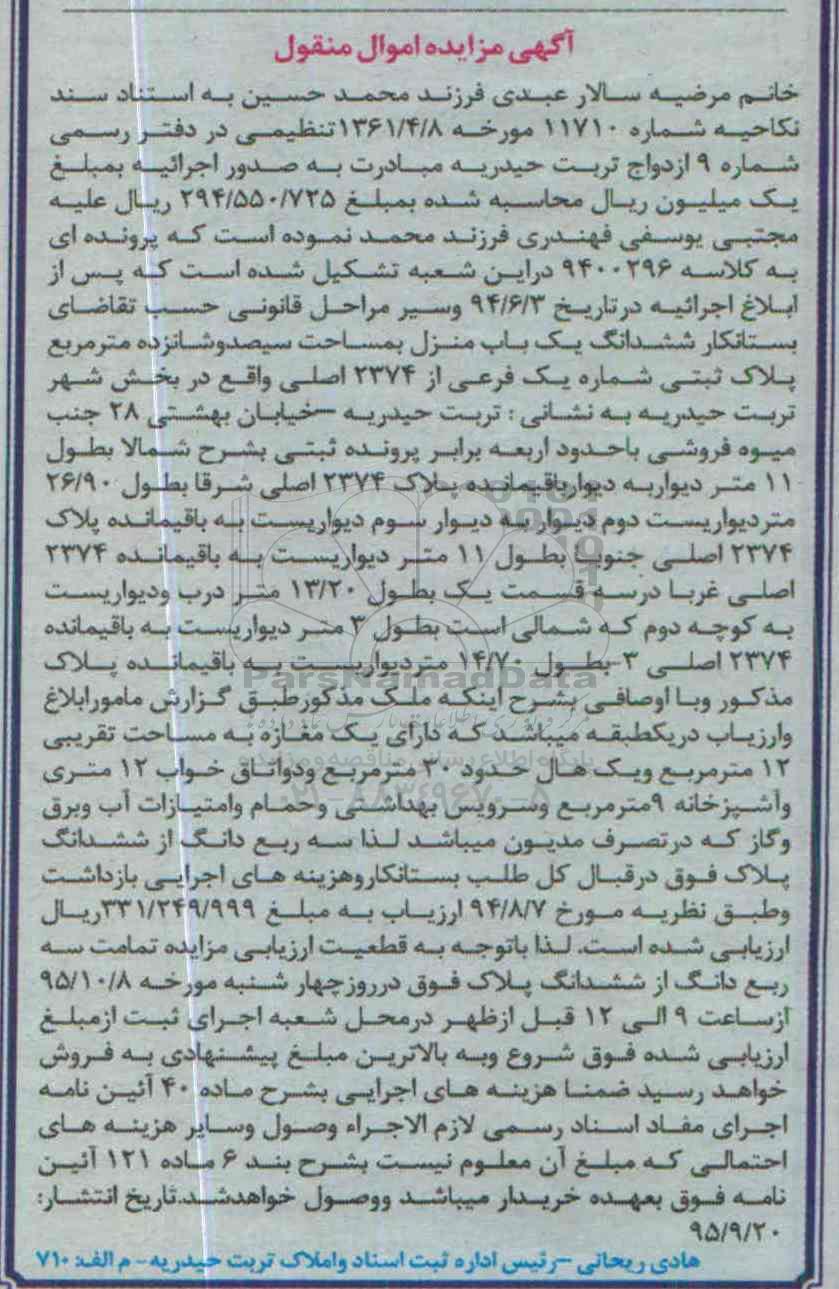 آگهی مزایده اموال منقول
خانم مرضیه سالار عبدی فرزند محمد حسین به استناد سند
نکاحیه شماره ۱۱۷۱۰ مورخه ۱۳۶۱/۴/۸ تنظیمی در دفتر رسمی
شماره ۹ ازدواج تربت حیدریه مبادرت به صدور اجرائیه بمبلغ
یک میلیون ریال محاسبه شده بمبلغ ۲۹۴/۵۵۰/۷۲۵ ریال علیه
مجتبی یوسفی فهندری فرزند محمد نموده است که پرونده ای
به کلاسه ۹۴۰۰۲۹۶ دراین شعبه تشکیل شده است که پس از
ابلاغ اجرائیه درتاریخ ۹۴/۶/۳ وسیر مراحل قانونی حسب تقاضای
بستانکار ششدانگ یک باب منزل بمساحت سیصدوشانزده مترمربع
پلاک ثبتی شماره یک فرعی از ۲۳۷۴ اصلی واقع در بخش شهر
تربت حیدریه به نشانی : تربت حیدریه –خیابان بهشتی ۲۸ جنب
میوه فروشی باحدود اربعه برابر پرونده ثبتی بشرح شمالا بطول
۱۱ متر دیواربه دیوارباقیمانده پلاک ۲۳۷۴ اصلی شرقا بطول ۲۶/۹۰
متردیواریست دوم دیوار به دیوار سوم دیواریست به باقیمانده پلاک
۲۳۷۴ اصلی جنوبا بطول ۱۱ متر دیواریست به باقیمانده ۲۳۷۴
اصلی غربا درسه قسمت یک بطول ۱۳/۲۰ متر درب ودیواریست
به کوچه دوم که شمالی است بطول ۳ متر دیواریست به باقیمانده
۲۳۷۴ اصلی ۳-بطول ۱۴/۷۰ متردیواریست به باقیمانده پلاک
ParsNamadData
مذکور وبا اوصافی بشرح اینکه ملک مذکورطبق گزارش مامورابلاغ
وارزیاب دریکطبقه میباشد که دارای یک مغازه به مساحت تقریبی
۱۲ مترمربع ویک هال حدود ۳۰ مترمربع ودواتاق خواب ۱۲ متری
وآشپزخانه ۹مترمربع وسرویس بهداشتی وحمام وامتیازات آب وبرق
وگاز که درتصرف مدیون میباشد لذا سه ربع دانگ از ششدانگ
پلاک فوق درقبال کل طلب بستانکاروهزینه های اجرایی بازداشت
وطبق نظریه مورخ ۹۴/۸/۷ ارزیاب به مبلغ ۳۳۱/۲۴۹/۹۹۹ریال
ارزیابی شده است. لذا باتوجه به قطعیت ارزیابی مزایده تمامت سه
ربع دانگ از ششدانگ پلاک فوق درروزچهار شنبه مورخه ۹۵/۱۰/۸
ازساعت ۹ الی ۱۲ قبل ازظهر درمحل شعبه اجرای ثبت ازمبلغ
ارزیابی شده فوق شروع وبه بالاترین مبلغ پیشنهادی به فروش
خواهد رسید ضمنا هزینه های اجرایی بشرح ماده ۴۰ آئین نامه
اجرای مفاد اسناد رسمی لازم الاجراء وصول وسایر هزینه های
احتمالی که مبلغ آن معلوم نیست بشرح بند ۶ ماده ۱۲۱ آئین
نامه فوق بعهده خریدار میباشد ووصول خواهدشد.تاریخ انتشار:
۹۵/۹/۲۰
هادی ریحانی –رئیس اداره ثبت اسناد واملاک تربت حیدریه- م الف: ۷۱۰